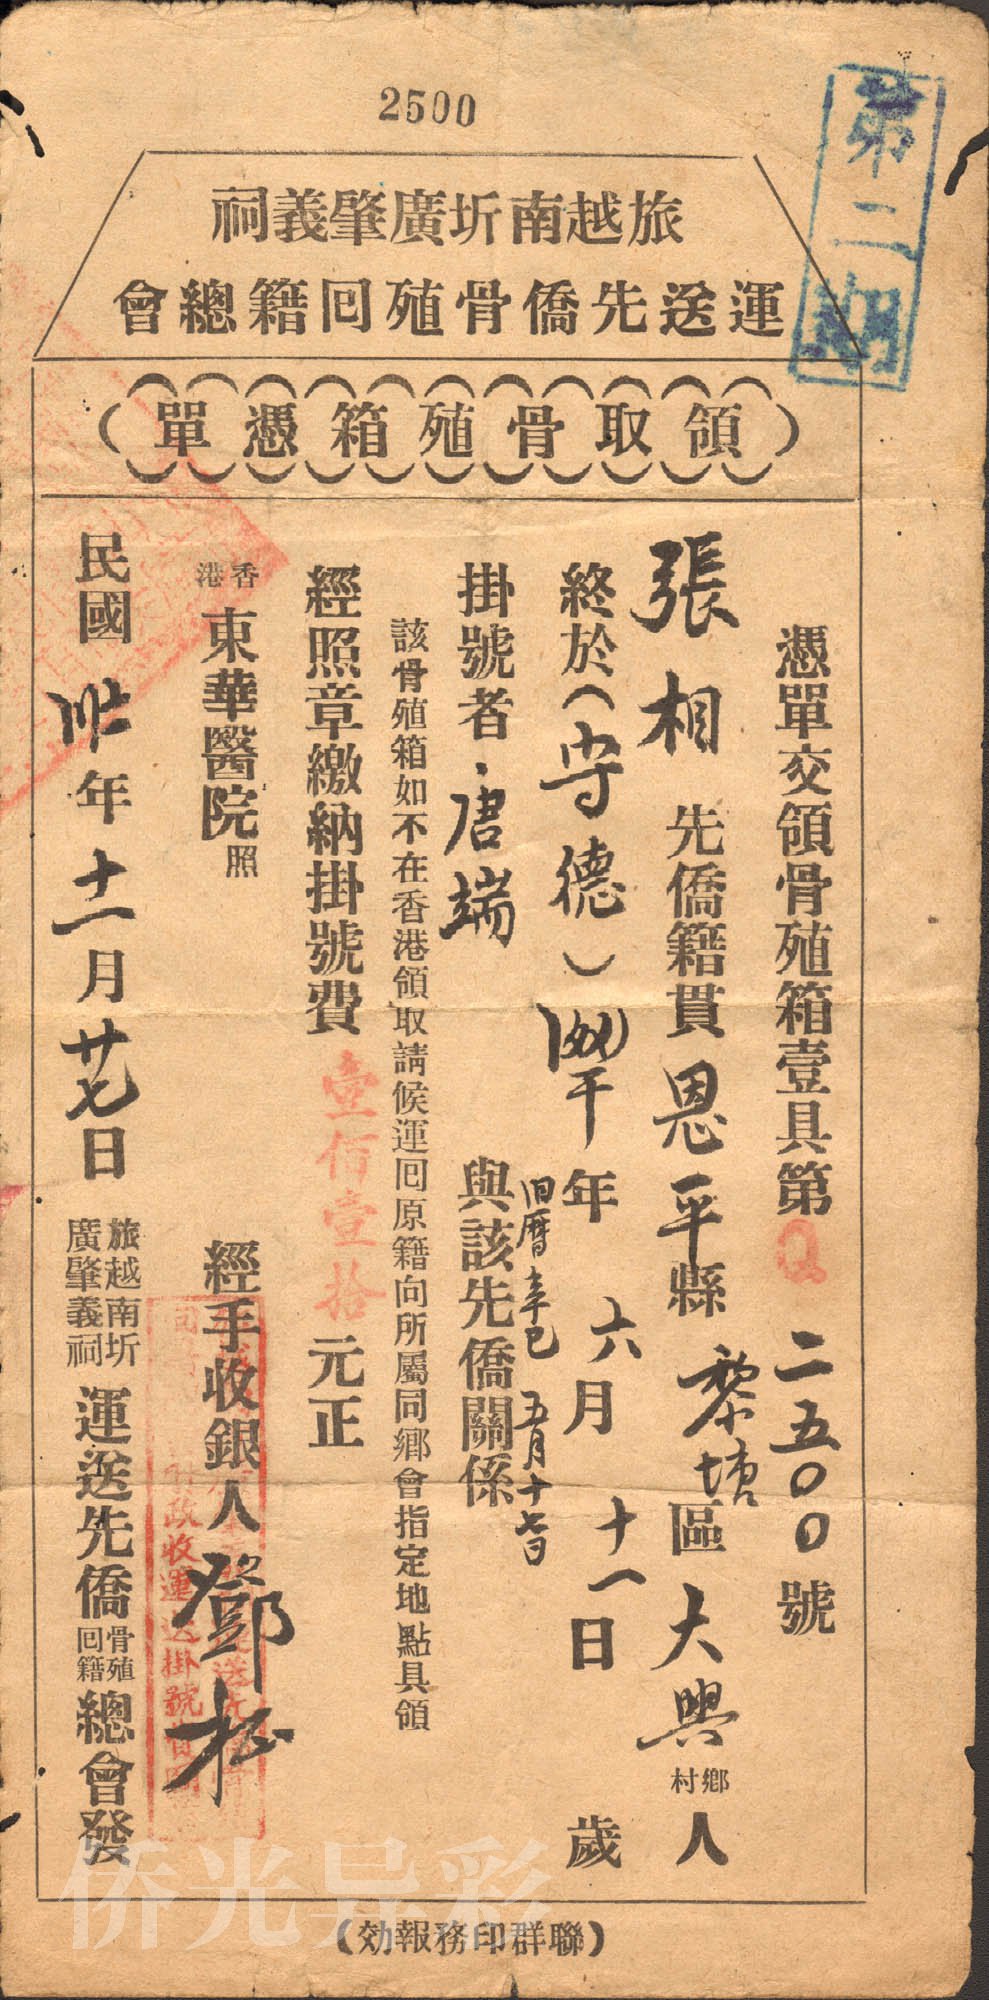 2500
第二期
旅越南圻廣肇義祠
運送先僑骨殖回籍總會
領取骨殖箱憑單
憑單交領骨殖箱壹具第Q二五〇〇號
張相先僑籍貫恩平縣黎塘區大興鄉村人
終於(守德)年六月十一日歲
旧曆辛巳五月十七日
掛號者、唐端與該先僑關係
該骨殖箱如不在香港領取請候運回原籍向所屬同鄉會指定地點具領
經照章繳納掛號費壹佰壹拾元正
香港東華醫院照
經手收銀人鄧松
民國卅年十一月廿七日旅越南圻廣肇義祠運送先僑骨殖回籍總會發
(聯群印務報効)
侨光异彩